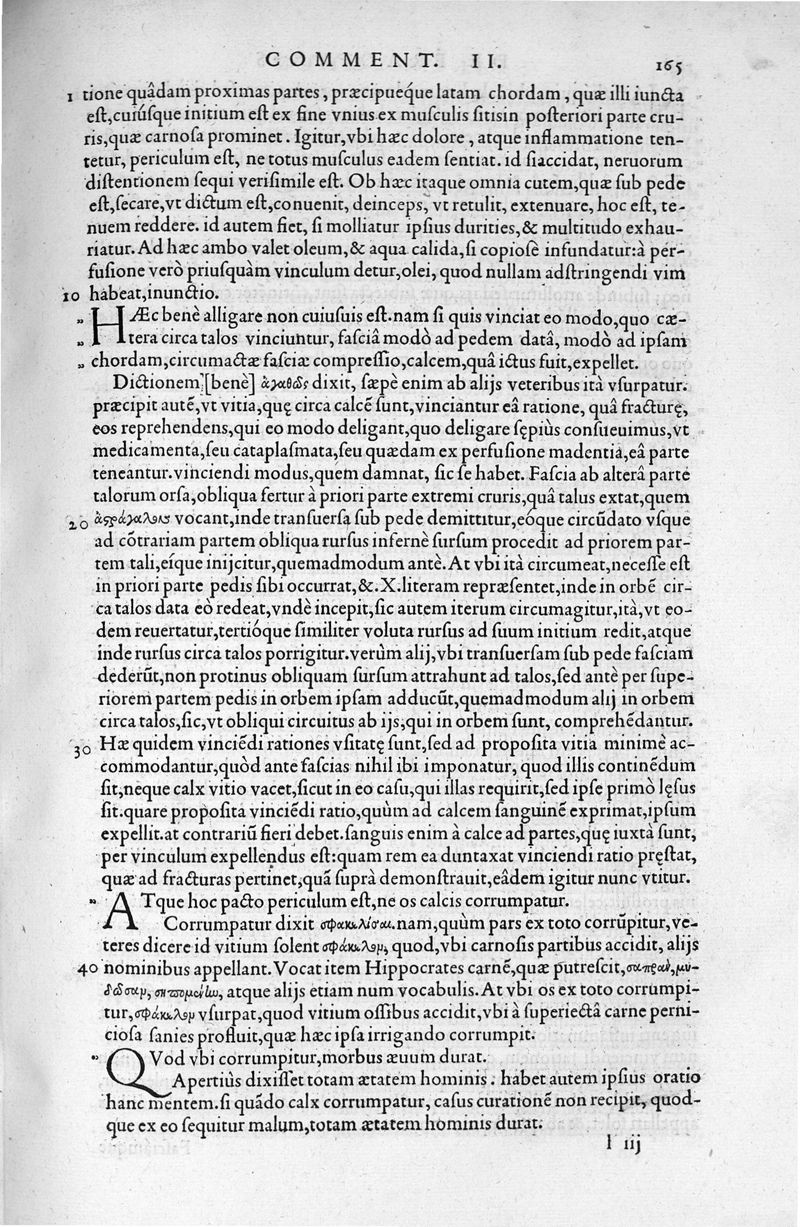 COMMENT. II. 165
1 tione quâdam proximas partes, præcipueq́ue latam chordam, quæ illi iuncta
est, cuiúsque initium est ex fine vnius ex musculis sitis in posteriori parte cru-
ris, quæ carnosa prominet. Igitur, vbi hæc dolore, atque inflammatione ten-
tetur, periculum est, ne totus musculus eadem sentiat. id si accidat, neruorum
distentionem sequi verisimile est. Ob hæc itaque omnia cutem, quæ sub pede
est, secare, vt dictum est, conuenit, deinceps, vt retulit, extenuare, hoc est, te-
nuem reddere. id autem fiet, si molliatur ipsius durities, & multitudo exhau-
riatur. Ad hæc ambo valet oleum, & aqua calida, si copiosè infundatur: à per-
fusione verò priusquàm vinculum detur, olei, quod nullam adstringendi vim
10 habeat, inunctio.
„ HÆc benè alligare non cuiusuis est. nam si quis vinciat eo modo, quo cæ-
„ tera circa talos vinciuntur, fasciâ modò ad pedem datâ, modò ad ipsam
„ chordam, circumactæ fasciæ compressio, calcem, quâ ictus fuit, expellet.
Dictionem [benè] ἀγαθῶς dixit, sæpè enim ab alijs veteribus ità vsurpatur.
præcipit autẽ, vt vitia, quę circa calcẽ sunt, vinciantur eâ ratione, quâ fracturę,
eos reprehendens, qui eo modo deligant, quo deligare sępiùs consueuimus, vt
medicamenta, seu cataplasmata, seu quædam ex perfusione madentia, eâ parte
teneantur. vinciendi modus, quem damnat, sic se habet. Fascia ab alterâ parte
talorum orsa, obliqua fertur à priori parte extremi cruris, quâ talus extat, quem
20 ἀςράγαλον vocant, inde transuersa sub pede demittitur, eóque circũdato vsque
ad cõtrariam partem obliqua rursus infernè sursum procedit ad priorem par-
tem tali, eíque inijcitur, quemadmodum antè. At vbi ità circumeat, necesse est
in priori parte pedis sibi occurrat, &. X. literam repræsentet, inde in orbẽ cir-
ca talos data eò redeat, vndè incepit, sic autem iterum circumagitur, ità, vt eo-
dem reuertatur, tertióque similiter voluta rursus ad suum initium redit, atque
inde rursus circa talos porrigitur. verùm alij, vbi transuersam sub pede fasciam
dederũt, non protinus obliquam sursum attrahunt ad talos, sed antè per supe-
riorem partem pedis in orbem ipsam adducũt, quemadmodum alij in orbem
circa talos, sic, vt obliqui circuitus ab ijs, qui in orbem sunt, comprehẽdantur.
30 Hæ quidem vinciẽdi rationes vsitatę sunt, sed ad proposita vitia minimè ac-
commodantur, quòd ante fascias nihil ibi imponatur, quod illis continẽdum
sit, neque calx vitio vacet, sicut in eo casu, qui illas requirit, sed ipse primò lęsus
sit. quare proposita vinciẽdi ratio, quùm ad calcem sanguinẽ exprimat, ipsum
expellit. at contrariũ fieri debet. sanguis enim à calce ad partes, quę iuxtà sunt,
per vinculum expellendus est: quam rem ea duntaxat vinciendi ratio pręstat,
quæ ad fracturas pertinet, quã suprà demonstrauit, eâdem igitur nunc vtitur.
„ ATque hoc pacto periculum est, ne os calcis corrumpatur.
Corrumpatur dixit σφακελίσαι. nam, quùm pars ex toto corrũpitur, ve-
teres dicere id vitium solent σφάκελον, quod, vbi carnosis partibus accidit, alijs
40 nominibus appellant. Vocat item Hippocrates carnẽ, quæ putrescit, σαπρὰν, μυ-
δῶσαν, σηπομένίω, atque alijs etiam num vocabulis. At vbi os ex toto corrumpi-
tur, σφάκελον vsurpat, quod vitium ossibus accidit, vbi à superiectâ carne perni-
ciosa sanies profluit, quæ hæc ipsa irrigando corrumpit.
„ QVod vbi corrumpitur, morbus æuum durat.
Apertiùs dixisset totam ætatem hominis. habet autem ipsius oratio
hanc mentem. si quãdo calx corrumpatur, casus curationẽ non recipit, quod-
que ex eo sequitur malum, totam ætatem hominis durat.
l iij